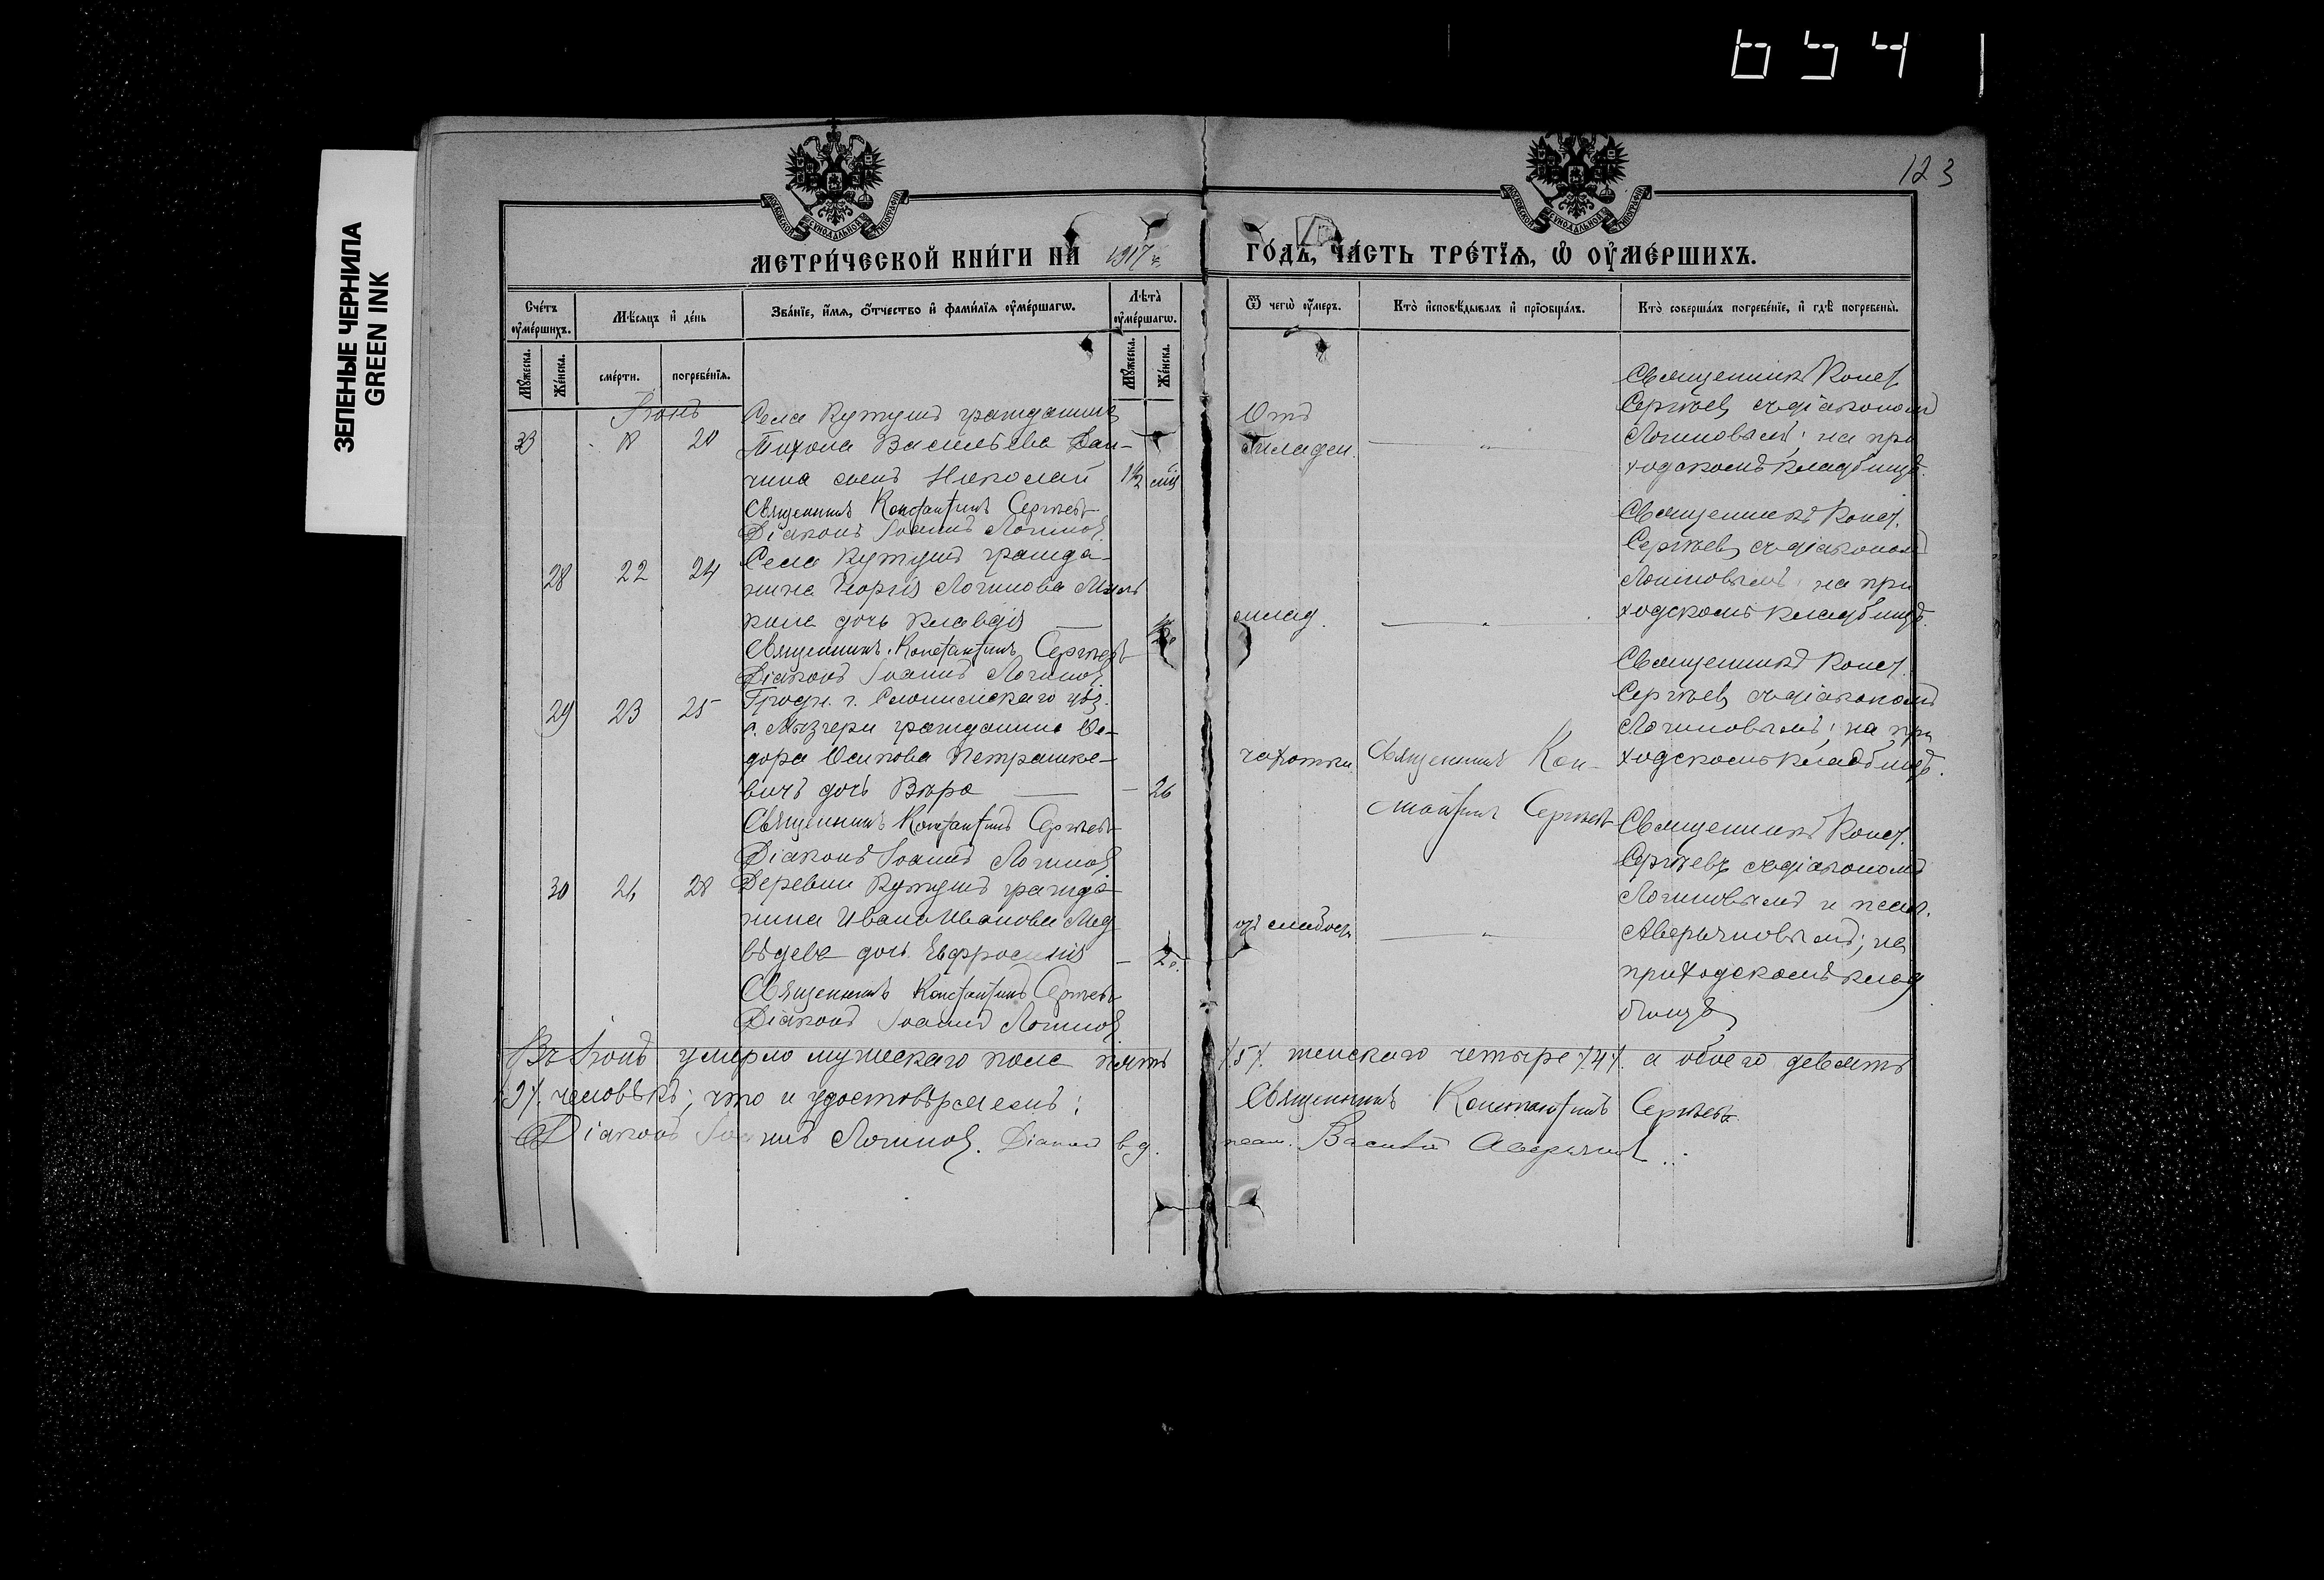 6541
ЗЕЛЕНЫЕ ЧЕРНИЛА
GREEN INK
123
МОСКОВСКОЙ СѴНОДАЛЬНОЙ ТИПОГРАФІИ
МОСКОВСКОЙ СѴНОДАЛЬНОЙ ТИПОГРАФІИ
МЕТРИ́ЧЕСКОЙ КНИ́ГИ НА 1917 г.
ГО́ДЪ, ЧА́СТЬ ТРЕ́ТЇѦ, Ѡ ОУ҆МЕ́РШИХЪ.
Сче́тъ оу҆ме́ршихъ.
Мѣ́сяцъ и҆ де́нь
Зва́нїе, и҆́мѧ, ѻ҆́тчество и҆ фами́лїѧ оу҆ме́ршагѡ.
Лѣ́та оу҆ме́ршагѡ.
Ѿ чегѡ̀ оу҆́меръ.
Кто̀ и҆сповѣ́дывалъ и҆ прїѡбща́лъ.
Кто̀ соверша́лъ погребе́нїе, и҆ гдѣ̀ погребены̀.
Мꙋ́жеска.
Же́нска.
сме́рти.
погребе́нїѧ.
Мꙋ́жеска.
Же́нска.
Іюнь
Села Кутушъ гражданина
33 18 20 Тихона Васильева
чина сынъ Николай 1½ мѣс
Священникъ Константинъ Сергѣевъ
Діаконъ Іоаннъ Логиновъ
Отъ
младен.
Священникъ Конст.
Сергѣевъ съ діакономъ
Логиновымъ; на при
ходскомъ кладбищѣ.
28 22 24 Села Кутушъ гражда-
нина Георгія Логинова
кина дочь Клавдія
Священникъ Константинъ Сергѣевъ
Діаконъ Іоаннъ Логиновъ
млад.
Священникъ Конст.
Сергѣевъ съ діакономъ
Логиновымъ на при
ходскомъ кладбищѣ.
29 23 25 Гродн. г. Слонимскаго уѣз.
с. Мызгери гражданина Ѳе-
дора Осипова Петрашке-
вичъ дочь Вѣра — 26
Священникъ Константинъ Сергѣевъ
Діаконъ Іоаннъ Логиновъ
чахотки
Священникъ Кон-
стантинъ Сергѣевъ
Священникъ Конст.
Сергѣевъ съ діакономъ
Логиновымъ; на при
ходскомъ кладбищѣ.
30 26 28 Деревни Кутушъ гражда-
нина Ивана Иванова Мед
вѣдева дочь Евфросинія
Священникъ Константинъ Сергѣевъ
Діаконъ Іоаннъ Логиновъ
отъ слабост.
Священникъ Конст.
Сергѣевъ съ діакономъ
Логиновымъ и псал.
Аверьяновымъ; на
приходскомъ клад
бищѣ
Въ Іюнѣ умерло мужескаго пола пять /5/. женскаго четыре /4/. а обоего девять
/9/. человѣкъ; что и удостовѣряемъ: Священникъ Константинъ Сергѣевъ
Діаконъ Іоаннъ Логиновъ. Діаконъ в. д. псал. Василій Аверьяновъ